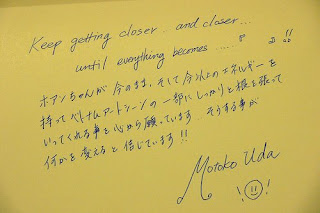 Keep getting closer.. and closer...
until everything becomes ..... !!
ホアンちゃんが 今のまま、そして 今以上の エネルギーを
持って ベトナムアートシーンの 一部に しっかりと 根を 張って
いってくれる事を 心から 願っています。そうする事が
何かを 変えると 信じています!!
Motoko Uda